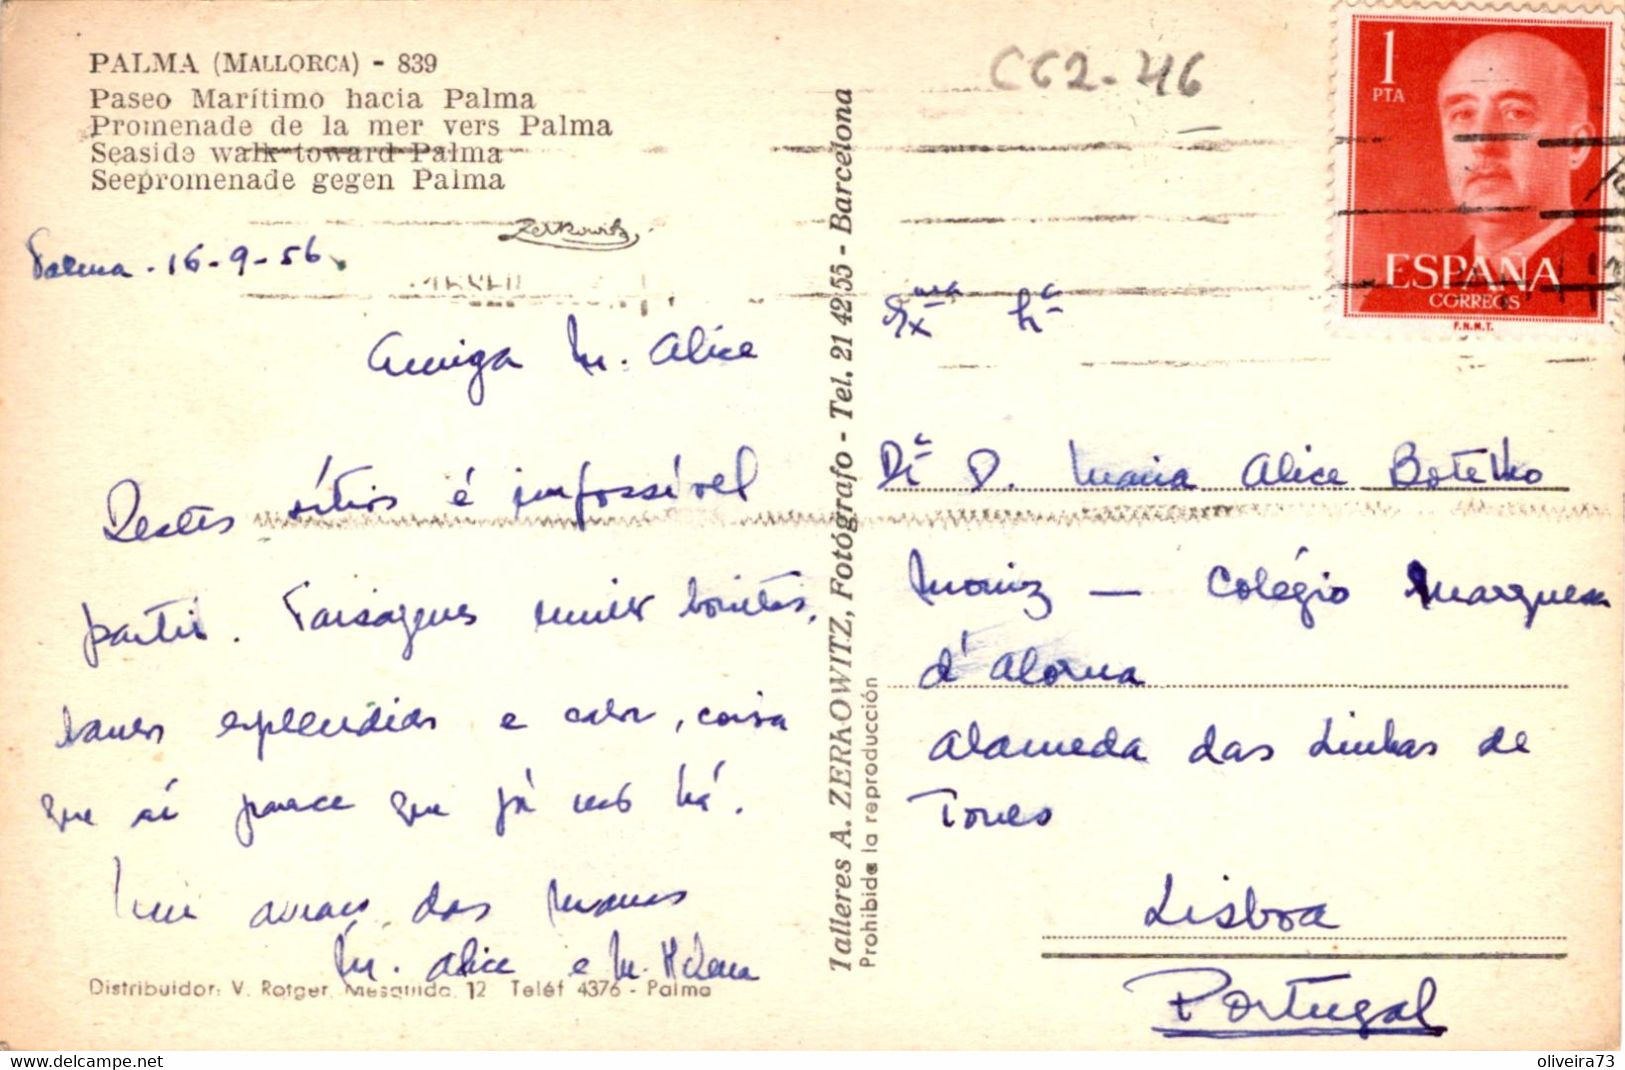 PALMA (MALLORCA) - 839
Paseo Marítimo hacia Palma
Promenade de la mer vers Palma
Seaside walk toward Palma
Seepromenade gegen Palma
Zerkowitz
Palma - 16-9-56
Amiga M. Alice
Destes sítios é impossível
partir. Paisagens muito bonitas,
banhos esplendidos e calor, coisa
que aí parece que já não há.
Um abraço das manas
M. Alice e M. Helena
Distribuidor: V. Rotger, Mesquida, 12 Teléf 4376 - Palma
Talleres A. ZERKOWITZ, Fotógrafo - Tel. 21 42 55 - Barcelona
Prohibida la reproducción
C62-46
1
PTA
ESPAÑA
CORREOS
F.N.M.T.
Exma
Drª D. Maria Alice Botelho
Moniz — Colégio Marquesa
d'Alorna
Alameda das Linhas de
Torres
Lisboa
Portugal
delcampe.net
oliveira73